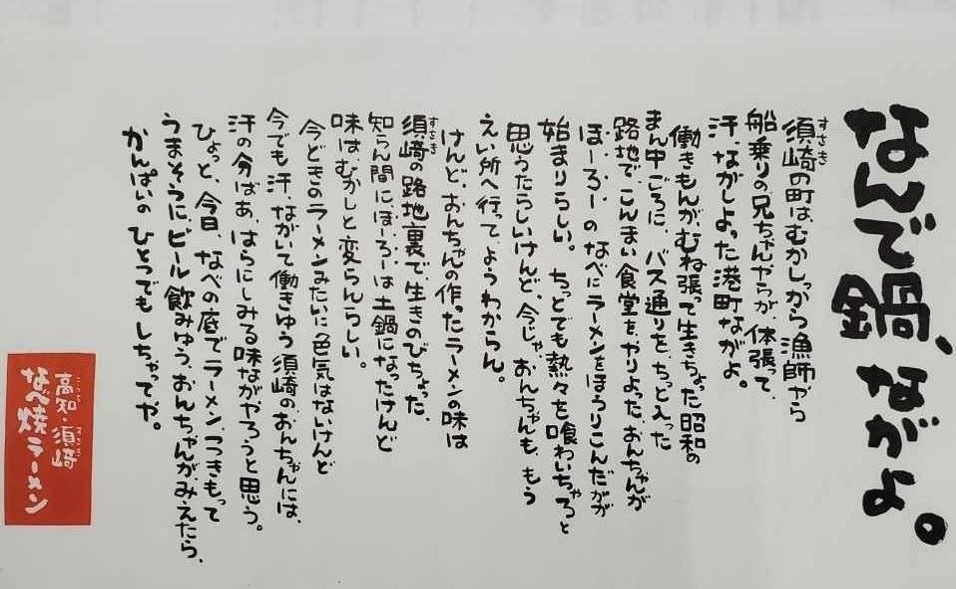 なんで鍋、ながよ。
須崎の町はむかしっから漁師やら
船乗りの兄ちゃんやらが、体張って、
汗、ながしよった港町ながよ。
働きもんがむね張って生きちょった昭和の
まん中ごろに、バス通りを、ちっと入った
路地で、こんまい食堂を、やりよった、おんちゃんが
ほーろーのなべにラーメンをほうりこんだがが
始まりらしい。ちっとでも熱々を喰わいちゃろと
思うたらしいけんど、今じゃ、おんちゃんも、もう
えい所へ行って、ようわからん。
けんど、おんちゃんの作ったラーメンの味は
須崎の路地裏で、生きのびちょった。
知らん間にほーろーは土鍋になったけんど
味は、むかしと変らんらしい。
今どきのラーメンみたいに色気はないけんど
今でも汗、ながいて働きゆう須崎のおんちゃんには、
汗の分ばあ、はらにしみる味ながやろうと思う。
ひょっと、今日、なべの底でラーメン、つきもって
うまそうにビール飲みゆう、おんちゃんがみえたら、
かんぱいのひとつでもしちゃってや。
高知・須崎
なべ焼ラーメン